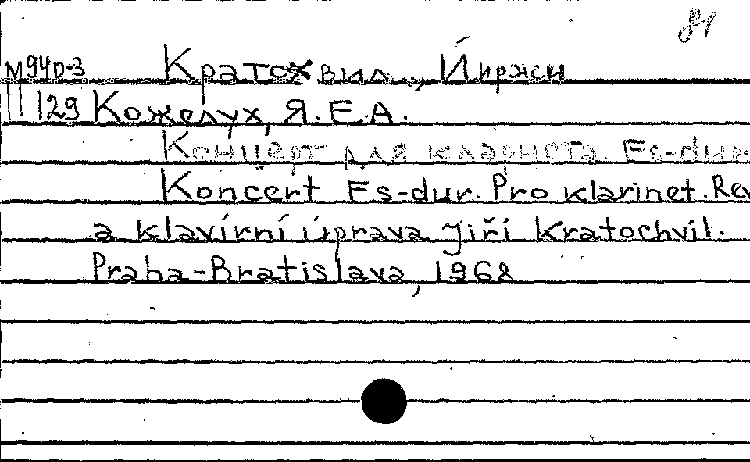 81
М94р-3 Кратохвил, Йиржи
II 129 Кожелух, Я.Е.А.
Концерт для кларнета Es-dur
Koncert Es-dur. Pro klarinet. Rev
a klavírní úprava Jiří Kratochvil.
Praha-Bratislava, 1968